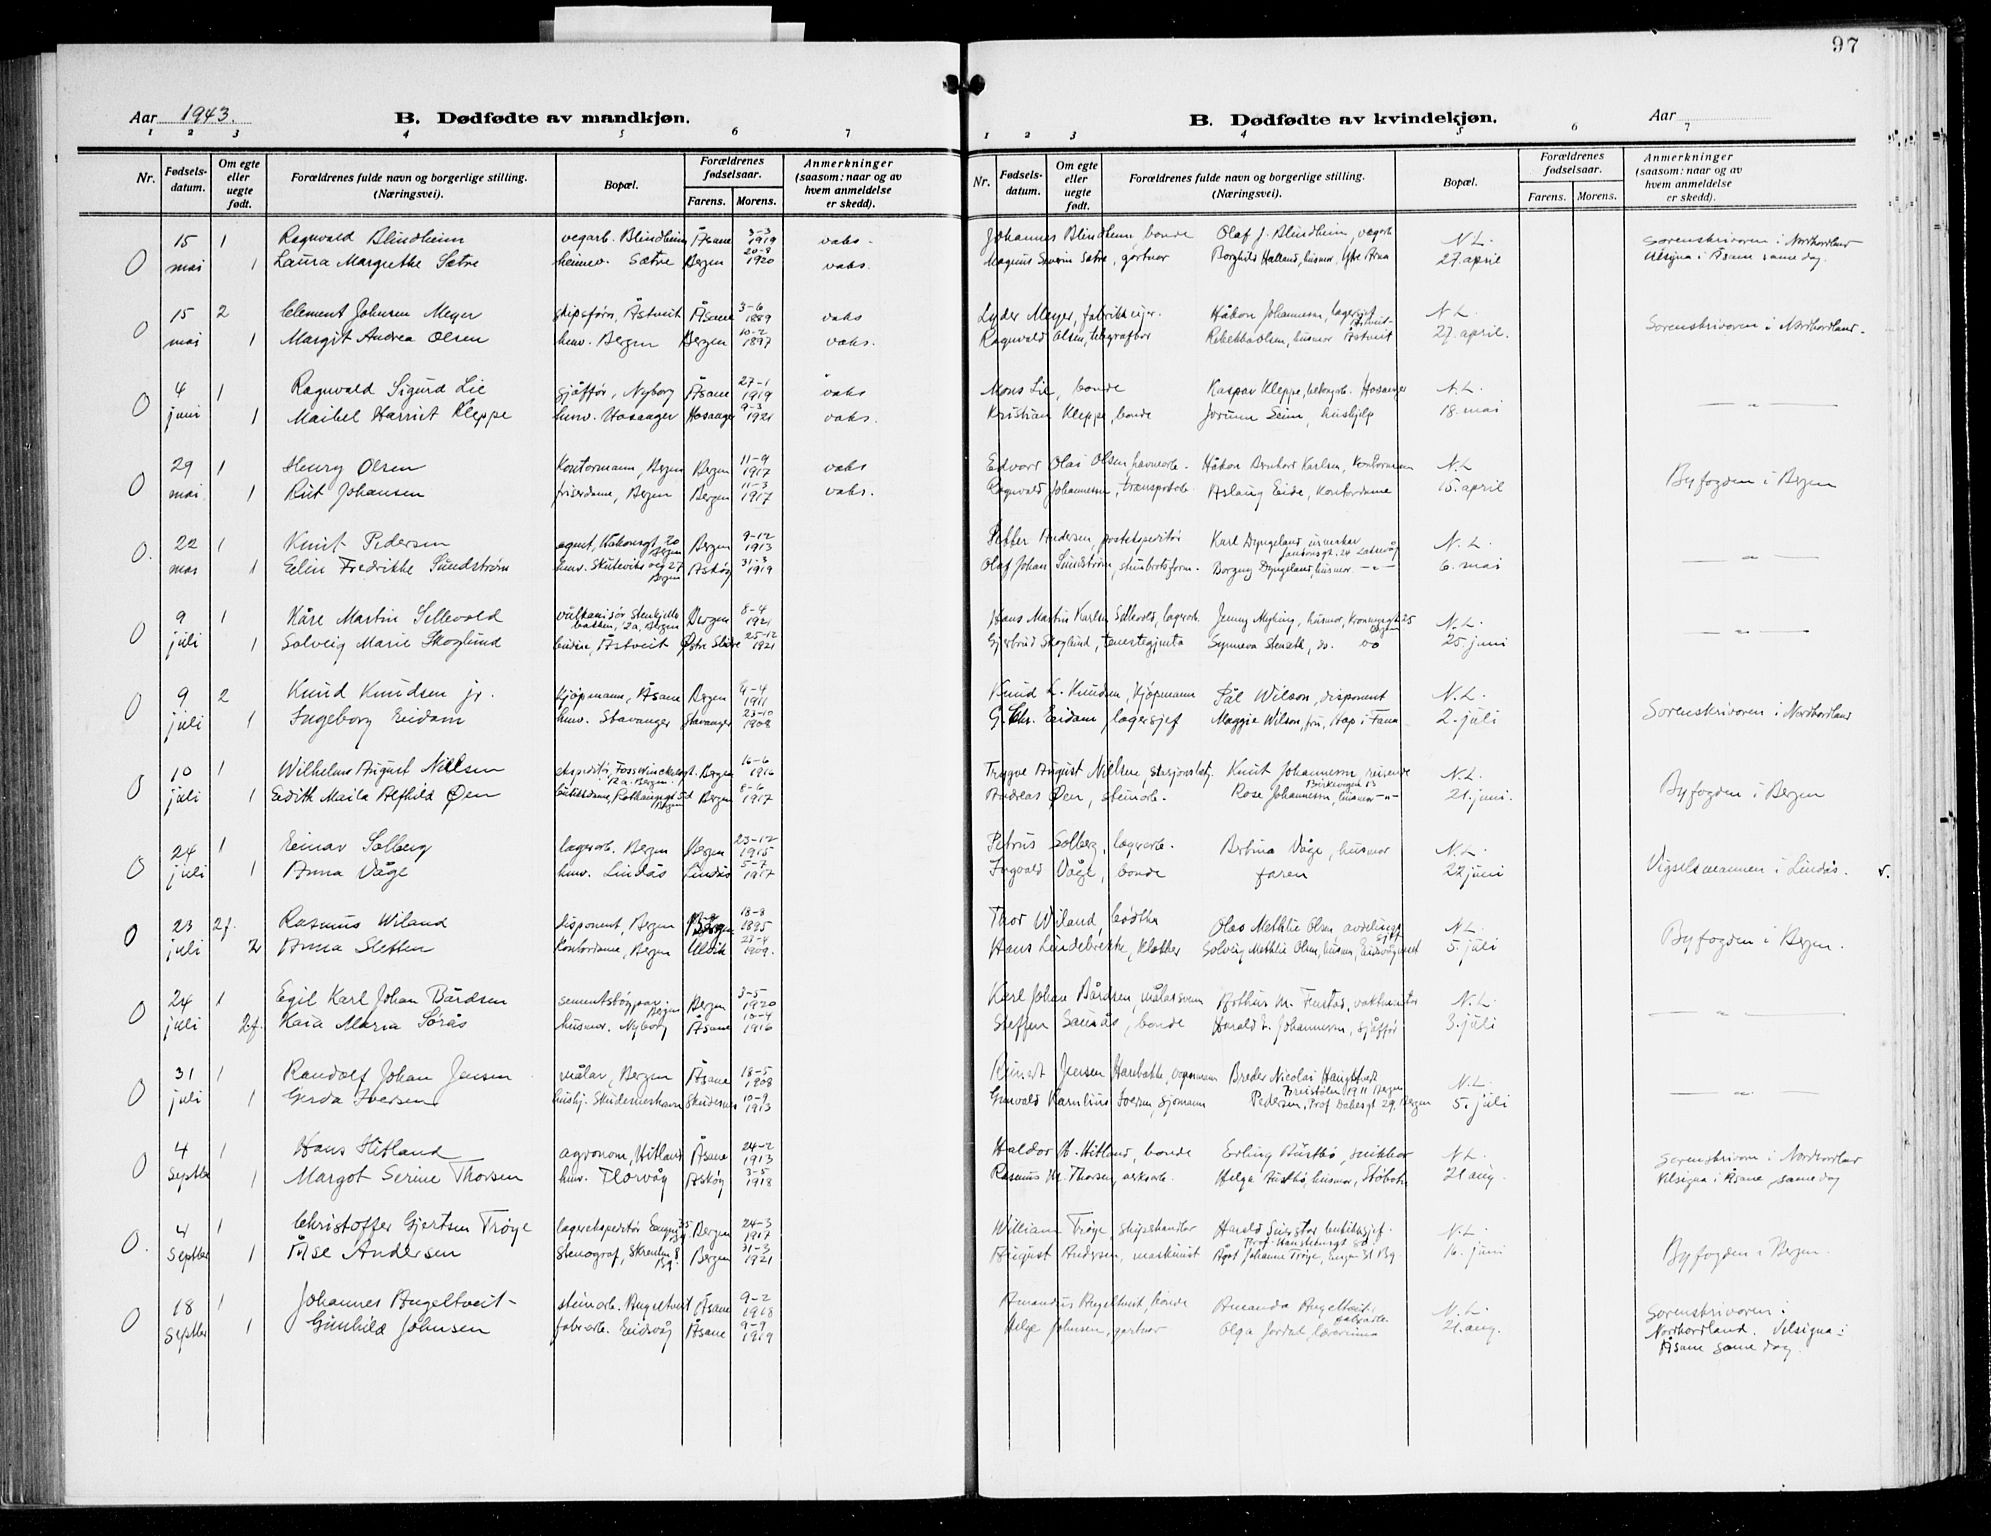 97
Aar 1943.
B. Dødfødte av mandkjøn.
B. Dødfødte av kvindekjøn.
Aar
1 2 3 4 5 6 7
1 2 3 4 5 6 7
Nr.
Fødsels-
datum.
Om egte
eller
uegte
født.
Forældrenes fulde navn og borgerlige stilling.
(Næringsvei).
Bopæl.
Forældrenes
fødselsaar.
Farens. Morens.
Anmerkninger
(saasom: naar og av
hvem anmeldelse
er skedd).
Nr.
Fødsels-
datum.
Om egte
eller
uegte
født.
Forældrenes fulde navn og borgerlige stilling.
(Næringsvei).
Bopæl.
Forældrenes
fødselsaar.
Farens. Morens.
Anmerkninger
(saasom: naar og av
hvem anmeldelse
er skedd).
15 1 Ragnvald Blindheim vegarb. Blindheim Åsane 3-3 1919 vaks. Johannes Blindheim, bonde Olaf J. Blindheim, vegarb N.L. Sorenskrivaren i Nordhordland
0 mai 1 Laura Margrethe Sætre heimev. Sætre Bergen 20-8 1920 vaks. Magnus Severin Sætre, gartner Borghild Halland, husmor, Ytre Arna 27. april Velsigna i Åsane same dag.
15 2 Clement Johnsen Meyer skipsførar, Åstveit Åsane 3-6 1889 vaks Lyder Meyer, fabrikkeigar. Håkon Johannesen, lagersjef Åstveit N L.
0 mai 1 Margit Andrea Olsen heimv. Bergen Bergen 10-2 1897 vaks. Ragnvald Olsen, telegrafbor Rebekka Olsen, husmor Åstveit 27. april. Sorenskrivaren i Nordhordland.
4 1 Ragnvald Sigurd Lie sjåfør, Nyborg Åsane 27-1 1919 vaks Mons Lie, bonde Kaspar Kleppe, Hosanger N.L.
0 juni 1 Maibel Harriet Kleppe heimv. Hosanger Hosanger 9-3 1921 vaks. Kristian Kleppe, bonde Jorunn Seim, hushjelp 18. mai — " —
29 1 Henry Olsen Kontormann, Bergen Bergen 11-9 1917 vaks Edvard Olai Olsen, havnearb. Håkon Bernhard Karlsen, Kontormann N.L
0 mai 1 Rut Johansen frisørdame, Bergen Bergen 11-3 1917 vaks. Ragnvald Johannessen, transportarb. Aslaug Eide, Kontordame 15. april Byfogden i Bergen
22 1 Knut Pedersen agent, Håkonsgt. 20 Bergen Bergen 9-12 1913 Petter Andersen, postekspeditør Karl Dyngeland, urmaker N.L.
0. mai 1 Elin Fredrikke Sundstrøm heimv. Skuteviks veg 27 Bergen Askøy 31-3 1919 Olaf Johan Sundström, Borgny Dyngeland, husmor. — " — 6. mai — " —
9 1 Kåre Martin Sellevold vulkanisør, Bergen Bergen 8-4 1921 Hans Martin Karlsen Sellevold, lagerarb. Jenny Myking, husmor, N.L.
0 juli 1 Solveig Marie Skoglund Åstveit Østre Slidre 25-12 1921 Gjertrud Skoglund, tenestegjenta Synneva 25. juni — " —
9 2 Knud Knudsen jr. kjøpmann, Åsane Bergen 4-4 1911 Knud K. Knudsen, kjøpmann Pål Wilson, disponent N.L.
0 juli 1 Ingeborg Eidam heimv. Stavanger Stavanger 23-10 1908 G. Chr. Eidam, lagersjef Maggie Wilson, fru, Hop i Fana 2. juli Sorenskrivaren i Nordhordland
10 1 Wilhelm August Nilsen ekspeditør, Foss Winckelsgt. 12 a. Bergen Bergen 16-6 1916 Trygve August Nilsen, Knut Johannesen, reisende N.L.
0 juli 1 Edith Maila Alfhild Øen Bergen Bergen 8-6 1917 Andreas Øen, steinarb. Rose Johannesen, husmor — " — 21. juni. Byfogden i Bergen
24 1 Einar Solberg lagerarb. Bergen Bergen 23-12 1915 Petrus Solberg, lagerarb. Bertina Våge, husmor N.L.
0 juli 1 Anna Våge heimv. Lindås Lindås 5-7 1917 Ingvald Våge, bonde faren 22 juni Vigselsmannen i Lindås. v.
23 2f. Rasmus Wiland disponent, Bergen 18-8 1895 Thor Wiland, Olav Methlie Olsen N.L.
0 juli Anna Sletten kontordame, Bergen 23-4 1909. Hans Solveig Methlie Olsen, husmor, 5. juli Byfogden i Bergen.
24 1 Egil Karl Johan Bårdsen Bergen Bergen 3-5 1920 Karl Johan Bårdsen, målarsvein N.L.
0 juli 2f. Kaia Maria Sørås husmor. Nyborg Åsane 10-4 1916 Steffen Sørås, bonde Harald L. Johannesen, sjåfør 3. juli — " —
31 1 Randolf Johan Jensen målar, Bergen Åsane 18-5 1908 Jensen Breder Nicolai N.L.
0 juli 1 Gerda Iversen hushj. Skudeneshavn Skudenes 10-9 1913 Iversen, sjømann Pedersen, Prof Dahlsgt 29, Bergen 5. juli — " —
4 1 Hans Hitland agronom, Hitland Åsane 24-2 1913 Haldor H. Hitland, bonde Erling snikkar N.L.
0 septbr 1 Margot Serine Thorsen heimv. Florvåg Askøy 3-5 1918 Rasmus M. Thorsen, Helga husmor, 21 aug. Sorenskrivaren i Nordhordland Velsigna i Åsane same dag
4 1 Christoffer Gjertsen Trøye lagerekspeditør Bergen 24-3 1917 William Trøye skipshandlar Harald N.L.
0. septbr 1 Åse Andersen stenograf, Bergen 31-3 1921 August Andersen, maskinist Ågot Johanne Trøye, Engen 31 Bg 16. juni Byfogden i Bergen.
18 1 Johannes Angeltveit steinarb. Angeltveit Åsane 9-2 1918 Amandus Angeltveit, bonde Amanda Angeltveit, N.L. Sorenskrivaren i
0 septbr 1 Gunhild Johnsen fabr.arb. Eidsvåg Åsane 9-9 1919 Helge Johnsen, gartnar Olga Jordal, lærarinna 21. aug. Nordhordland. Velsigna i
Åsane same dag.